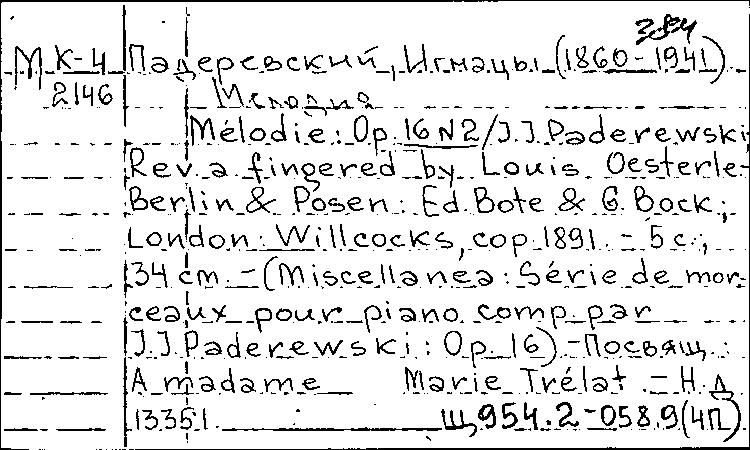 3894
М К-4 Падеревский, Игнацы (1860-1941)
2146 Мелодия
Mélodie: Op. 16 N2 / J.J. Paderewski;
Rev. a fingered by Louis Oesterle.-
Berlin & Posen: Ed. Bote & G. Bock;
London: Willcocks, cop. 1891. - 5 с.;
34 cm. - (Miscellanea: Série de mor-
ceaux pour piano comp. par
J.J. Paderewski: Op. 16) - Посвящ.:
A madame Marie Trélat. - Н. Д.
13351. Щ954.2-058.9(4П)